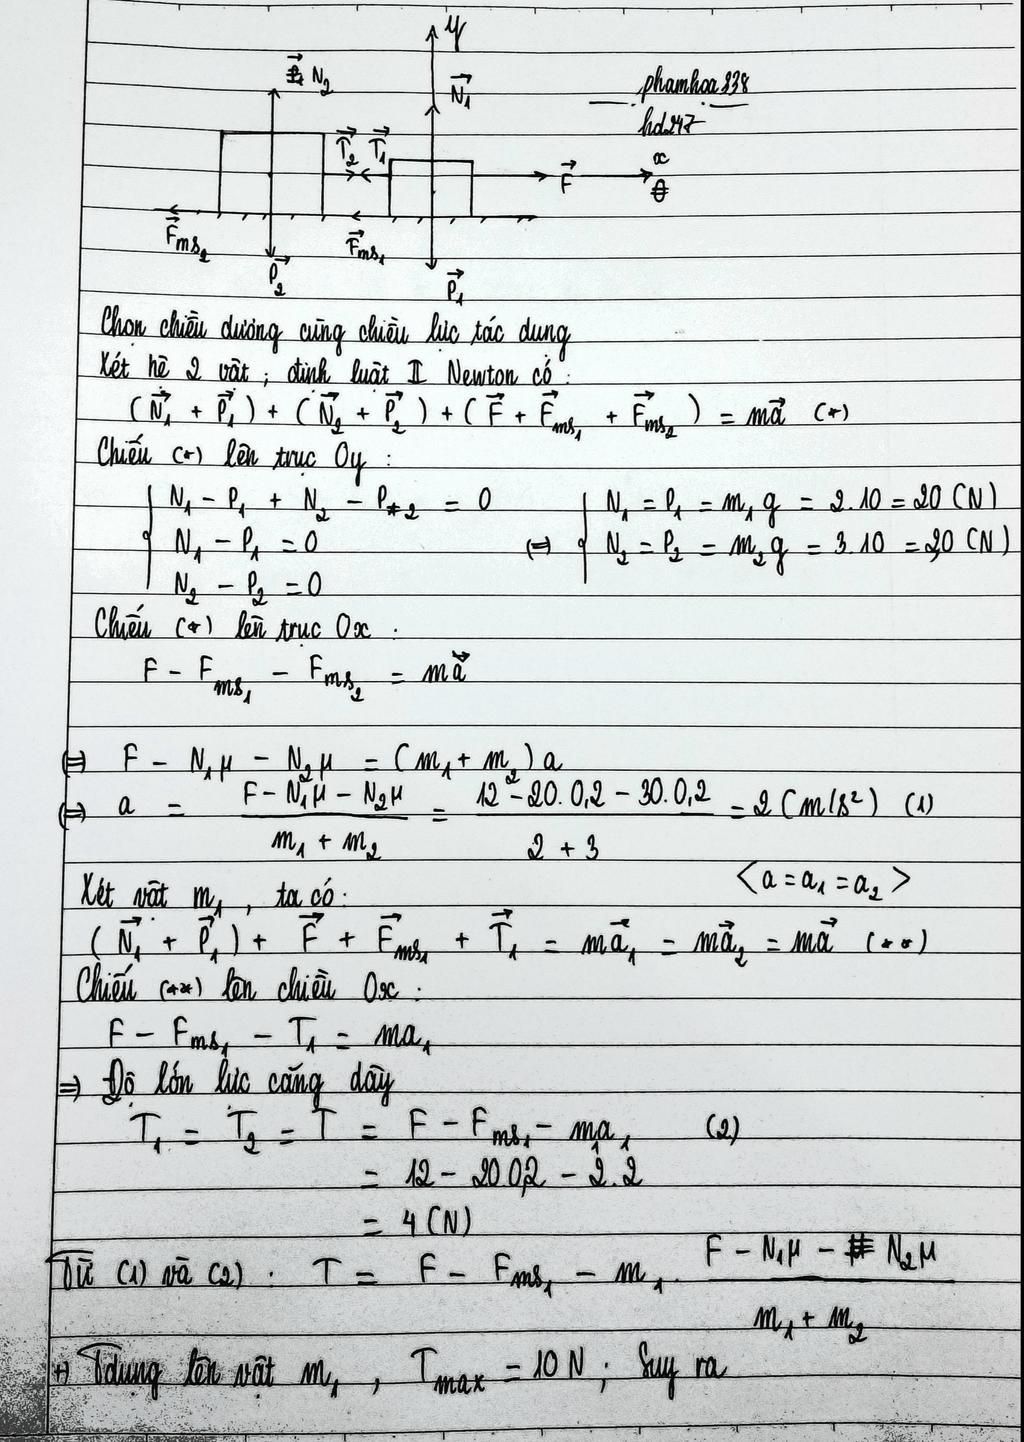 y
P₁ N₂
N₁
phamhoa338
hd247
T₂ T₁
F
x
Fms₂
Fms₁
P₂
P₁
Chọn chiều dương cùng chiều lực tác dụng
Xét hệ 2 vật; định luật II Newton có:
(N₁ + P₁) + (N₂ + P₂) + (F + Fms₁ + Fms₂) = ma (*)
Chiếu (*) lên trục Oy:
N₁ - P₁ + N₂ - P₂ = 0
N₁ - P₁ = 0
N₂ - P₂ = 0
(=) N₁ = P₁ = m₁g = 2.10 = 20 (N)
N₂ = P₂ = m₂g = 3.10 = 30 (N)
Chiếu (*) lên trục Ox:
F - Fms₁ - Fms₂ = ma
(=) F - N₁μ - N₂μ = (m₁ + m₂) a
(=) a = (F - N₁μ - N₂μ)/(m₁ + m₂) = (12 - 20.0,2 - 30.0,2)/(2 + 3) = 2 (m/s²) (1)
<a = a₁ = a₂>
Xét vật m₁, ta có:
(N₁ + P₁) + F + Fms₁ + T₁ = ma₁ = ma₂ = ma (**)
Chiếu (**) lên chiều Ox:
F - Fms₁ - T₁ = ma₁
=) Độ lớn lực căng dây
T₁ = T₂ = T = F - Fms₁ - m₁a₁ (2)
= 12 - 20.0,2 - 2.2
= 4 (N)
Từ (1) và (2): T = F - Fms₁ - m₁. (F - N₁μ - N₂μ)/(m₁ + m₂)
+) Tdụng lên vật m₁, Tmax = 10 N; Suy ra